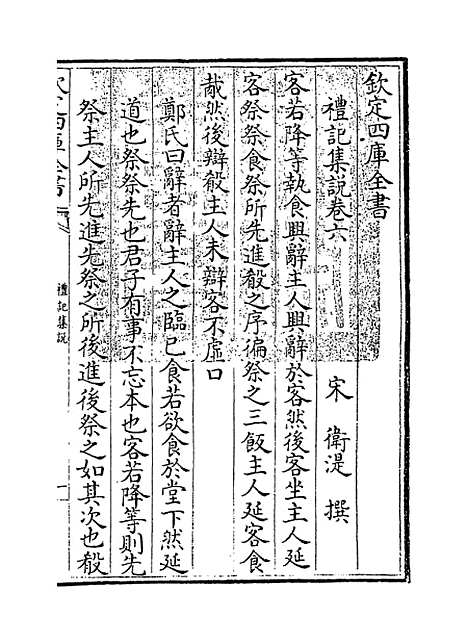 欽定四庫全書
禮記集說卷六
宋 衛湜 撰
客若降等執食興辭主人興辭於客然後客坐主人延
客祭祭食祭所先進殽之序徧祭之三飯主人延客食
胾然後辯殽主人未辯客不虛口
鄭氏曰辭者辭主人之臨己食若欲食於堂下然延
道也祭祭先也君子有事不忘本也客若降等則先
祭主人所先進先祭之所後進後祭之如其次也殽
禮記集說
一